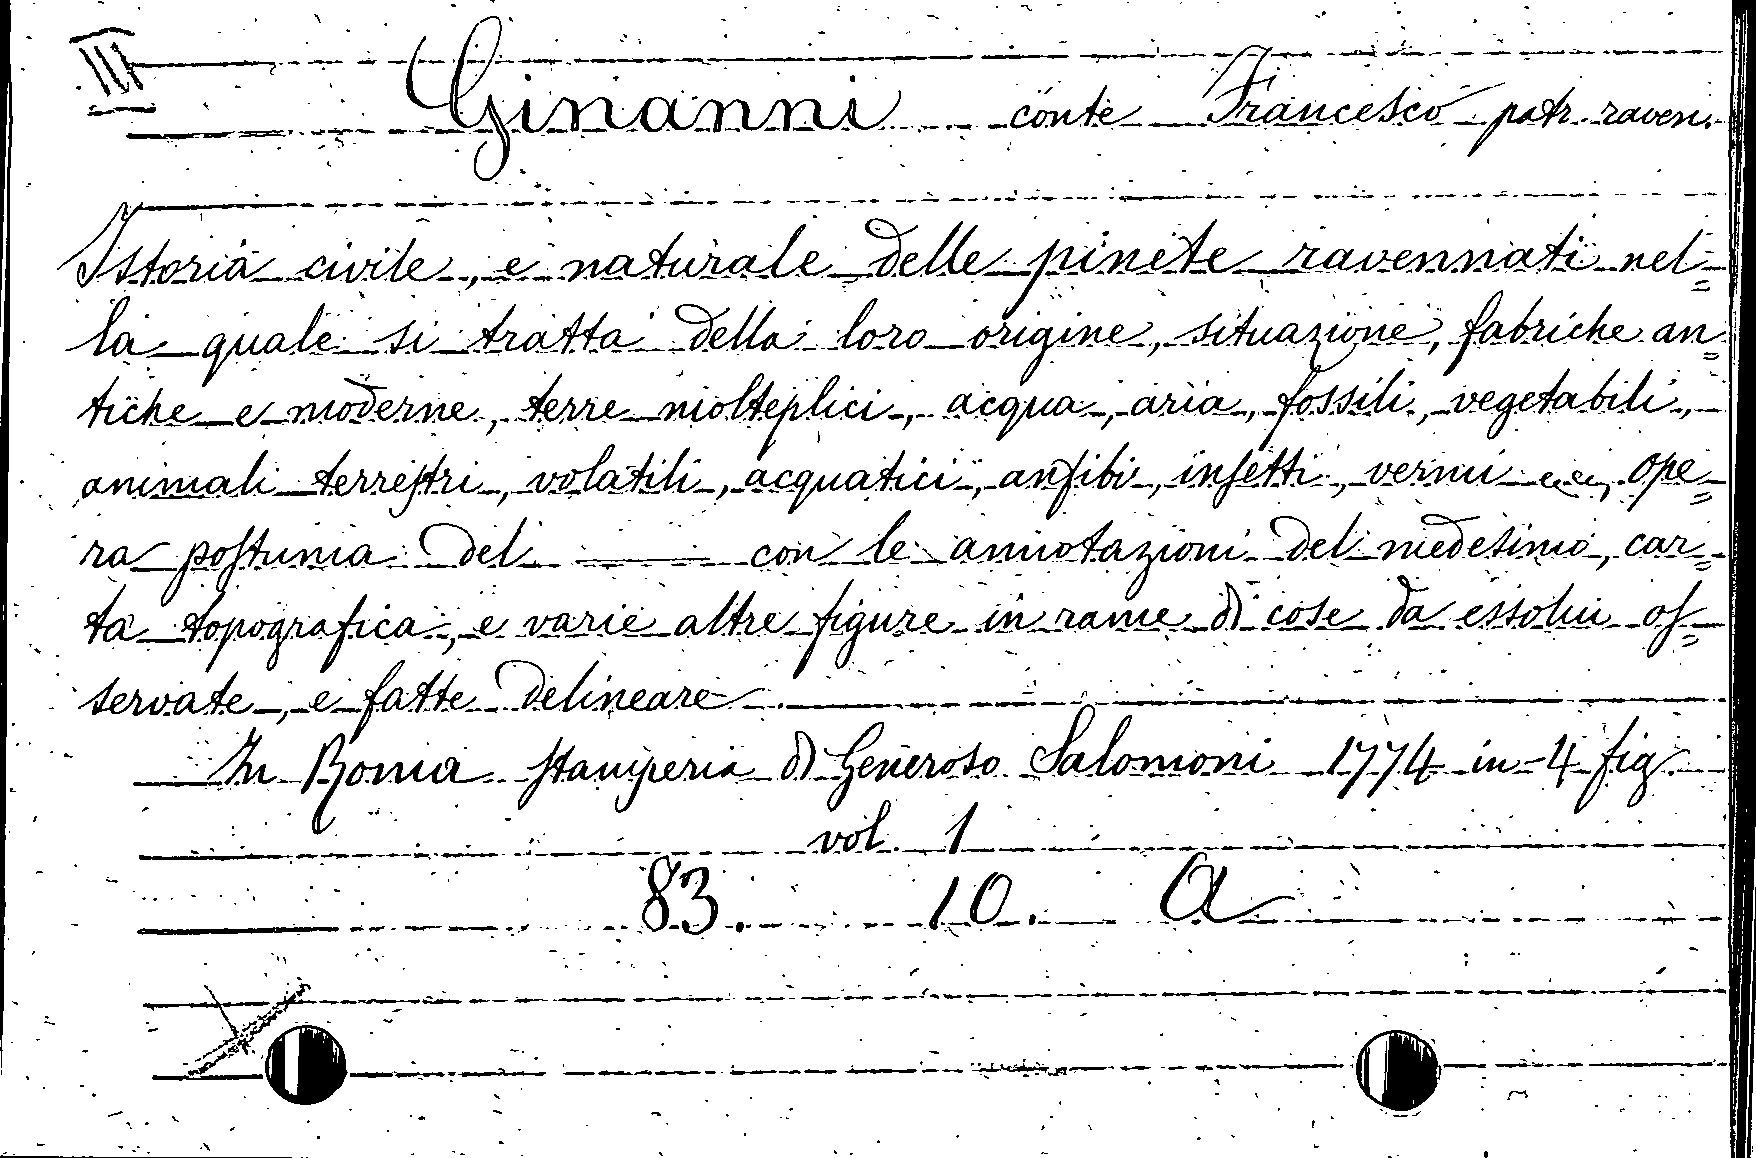 III
Ginanni conte Francesco patr. raven.
Istoria civile, e naturale delle pinete ravennati nel=
la quale si tratta della loro origine, situazione, fabriche an=
tiche e moderne, terre molteplici, acqua, aria, fossili, vegetabili,
animali terrestri, volatili, acquatici, anfibi, insetti, vermi ecc, ope=
ra postuma del —— con le annotazioni del medesimo, car=
ta topografica, e varie altre figure in rame di cose da essolui os=
servate, e fatte delineare
In Roma stamperia di Generoso Salomoni 1774 in-4 fig.
vol. 1
83. 10. A